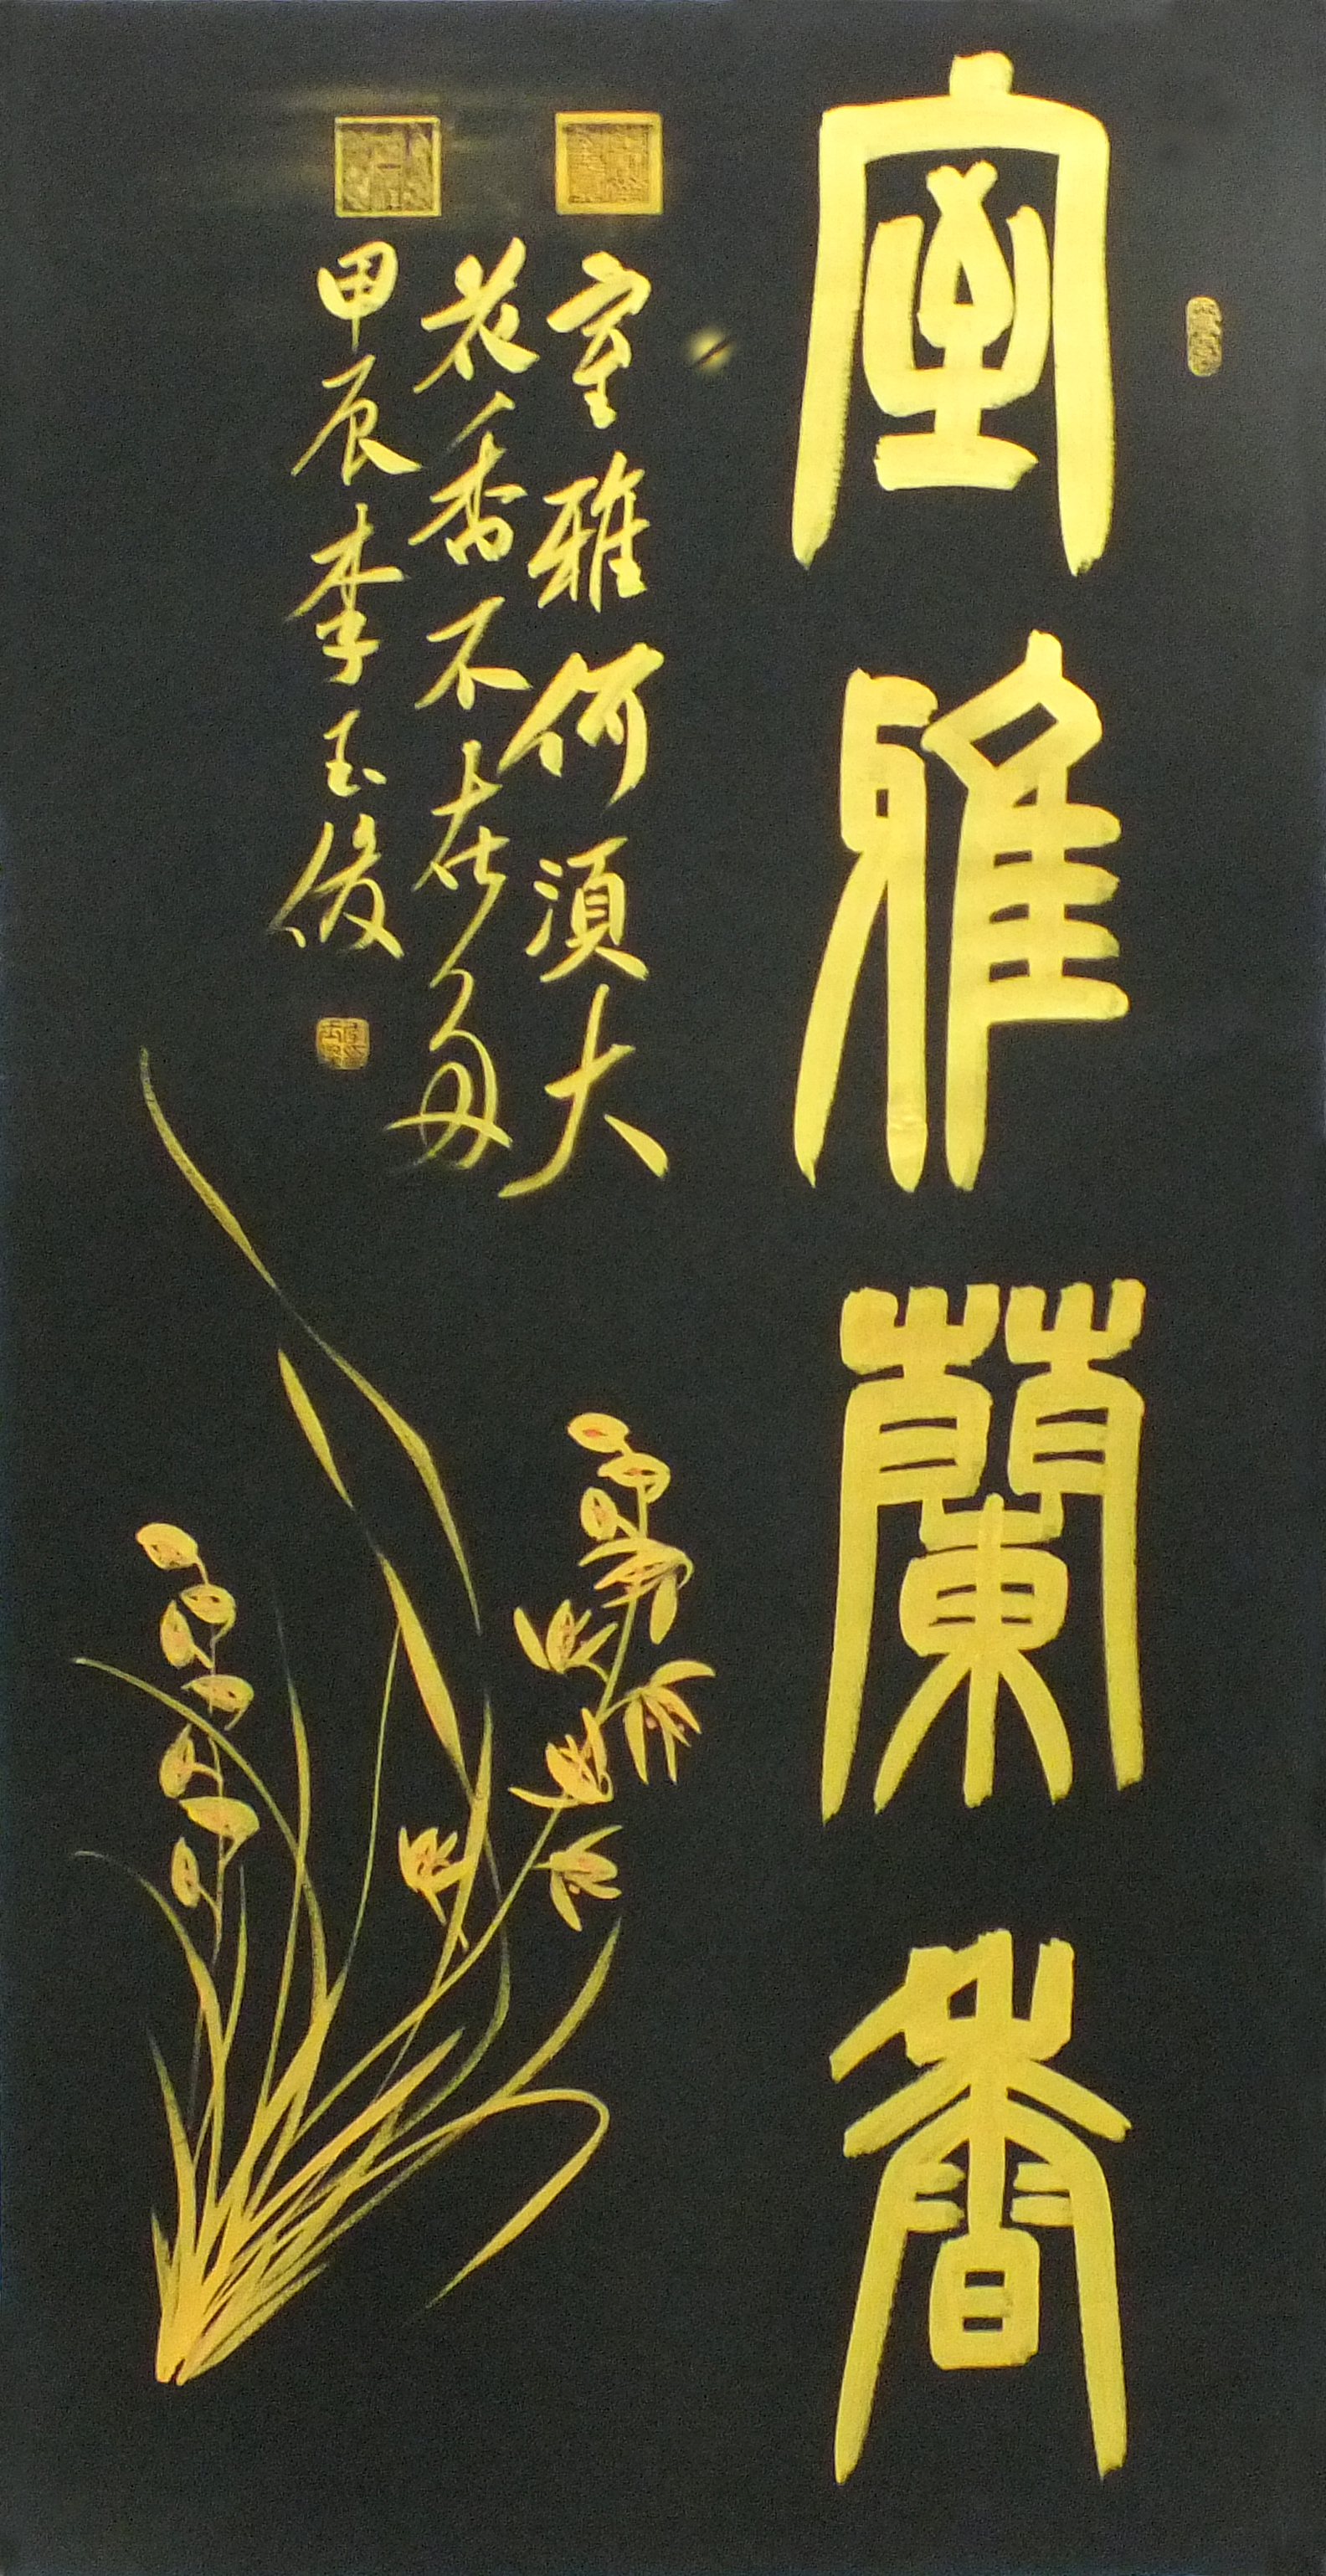 室雅蘭香
室雅何須大
花香不在多
甲辰李玉俊